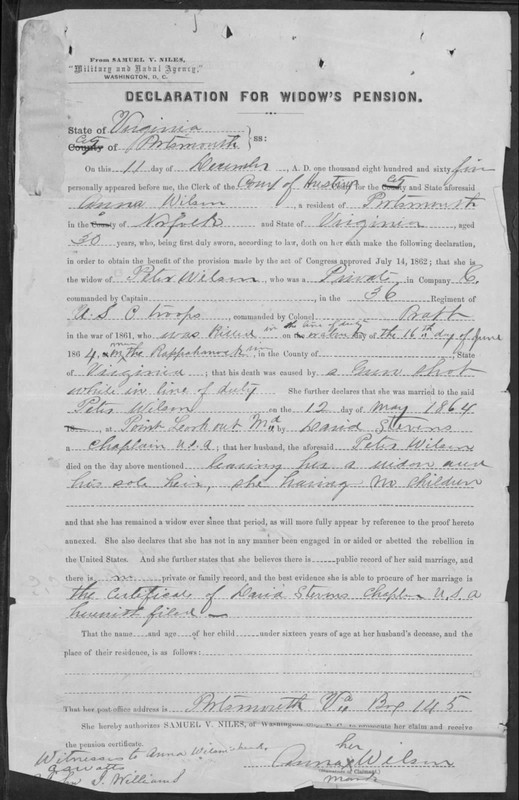 From SAMUEL V. NILES,
"Military and Naval Agency,"
WASHINGTON, D. C.
DECLARATION FOR WIDOW'S PENSION.
State of Virginia
City County of Portsmouth } ss:
On this 11 day of December, A. D. one thousand eight hundred and sixty five
personally appeared before me, the Clerk of the Court of Hustings for the City County and State aforesaid
Anna Wilson a resident of Portsmouth
in the County of Norfolk and State of Virginia aged
30 years, who, being first duly sworn, according to law, doth on her oath make the following declaration,
in order to obtain the benefit of the provision made by the act of Congress approved July 14, 1862; that she is
the widow of Peter Wilson, who was a Private in Company C.
commanded by Captain, in the 36 Regiment of
U S C troops commanded by Colonel Pratt
in the war of 1861, who was killed in the line of duty on day of the 16th day of June
1864, the Rappahannock, in the County of, State
of Virginia; that his death was caused by a Gun shot
while in line of duty She further declares that she was married to the said
Peter Wilson on the 12 day of May 1864
at Point Lookout Md by David Stevens
a Chaplain U S A; that her husband, the aforesaid Peter Wilson
died on the day above mentioned leaving her a widow and
his sole heir, she having no children
and that she has remained a widow ever since that period, as will more fully appear by reference to the proof hereto
annexed. She also declares that she has not in any manner been engaged in or aided or abetted the rebellion in
the United States. And she further states that she believes there is public record of her said marriage, and
there is no private or family record, and the best evidence she is able to procure of her marriage is
the Certificate of David Stevens Chaplain U.S.A
herewith filed
That the name and age of her child under sixteen years of age at her husband's decease, and the
place of their residence, is as follows:
That her post-office address is Portsmouth Va Box 145
She hereby authorizes SAMUEL V. NILES, of Washington City, D. C. to prosecute her claim and receive
the pension certificate.
Witnesses to Anna Wilson's mark
her
Anna x Wilson
J. Williams
(Signature of Claimant)
mark